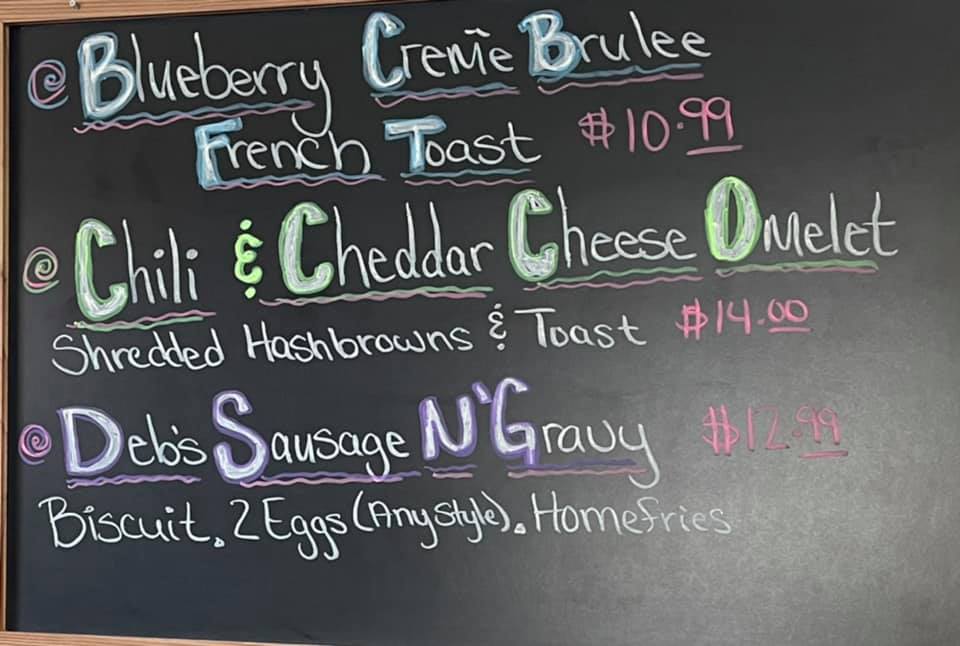 Blueberry Creme Brulee
French Toast $10.99
Chili & Cheddar Cheese Omelet
Shredded Hashbrowns & Toast $14.00
Deb's Sausage N' Gravy $12.99
Biscuit. 2 Eggs (Any Style). Homefries